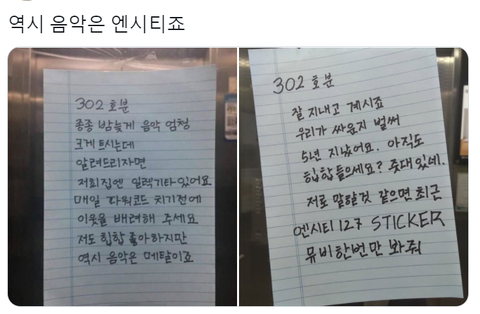 역시 음악은 엔시티죠
302 호분
종종 밤늦게 음악 엄청
크게 트시는데
알려드리자면
저희집엔 일렉기타 있어요
매일 파워코드 치기전에
이웃을 배려해 주세요
저도 힙합 좋아하지만
역시 음악은 메탈이죠
302 호분
잘 지내고 계시죠
우리가 싸운지 벌써
5년 지났어요. 아직도
힙합들으세요? 줏대있네.
저로 말할것 같으면 최근
엔시티 127 STICKER
뮤비한번만 봐줘